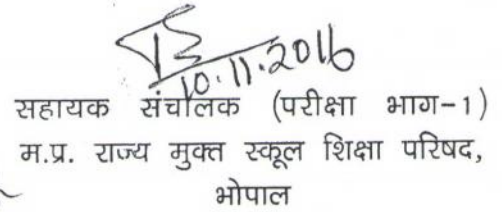 10.11.2016
सहायक संचालक (परीक्षा भाग-1)
म.प्र. राज्य मुक्त स्कूल शिक्षा परिषद,
भोपाल